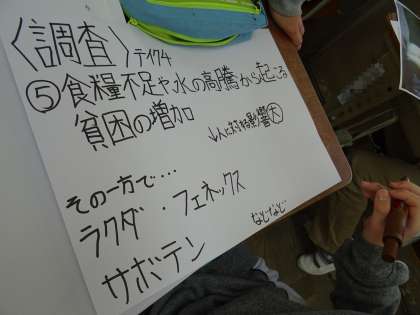 〈調査〉テイク4
⑤食糧不足や水の高騰から起こる
貧困の増加
↓人に対する影響大
その一方で....
ラクダ・フェネックス
サボテン
などなど